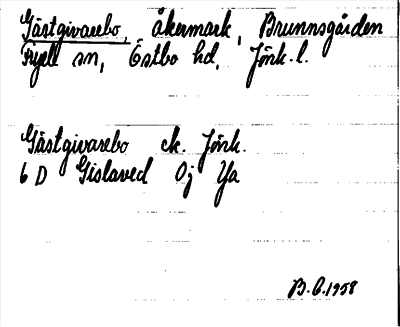 Gästgivarebo, Åkermark, Brunnsgården
Fryele sn, Östbo hd, Jönk. l.
Gästgivarebo ek. Jönk.
6 D Gislaved Oj Ya
B. G. 1958